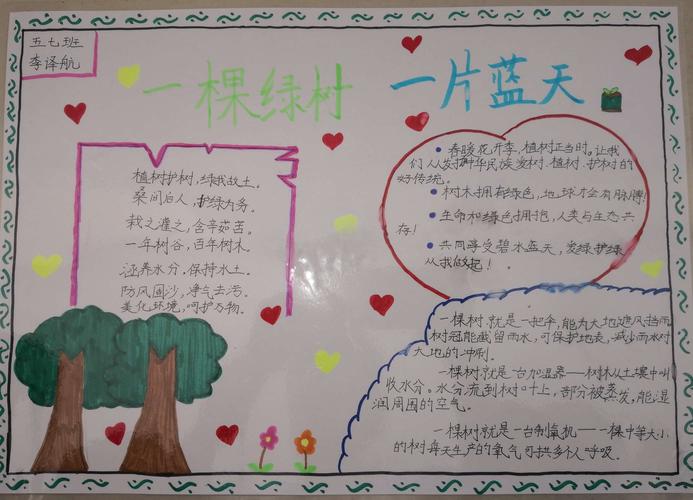 五七班
李译航
一棵绿树 一片蓝天
植树护树,绿我故土。
桑间后人,护绿为务。
栽之灌之,含辛茹苦。
一年树谷,百年树木。
涵养水分,保持水土。
防风固沙,净气去污。
美化环境,呵护万物。
春暖花开季,植树正当时。让我
们人人发扬中华民族爱树、植树、护树的
好传统。
树木拥有绿色,地球才会有脉膊!
生命和绿色拥抱,人类与生态共
存!
共同享受碧水蓝天,爱绿护绿
从我做起!
一棵树就是一把伞,能为大地遮风挡雨
树冠能截留雨水,可保护地表,减少雨水对
大地的冲刷。
一棵树就是一台加湿器——树木从土壤中吸
收水分。水分流到树叶上,部分被蒸发,能湿
润周围的空气。
一棵树就是一台制氧机——一棵中等大小
的树每天生产的氧气可供多个人呼吸。